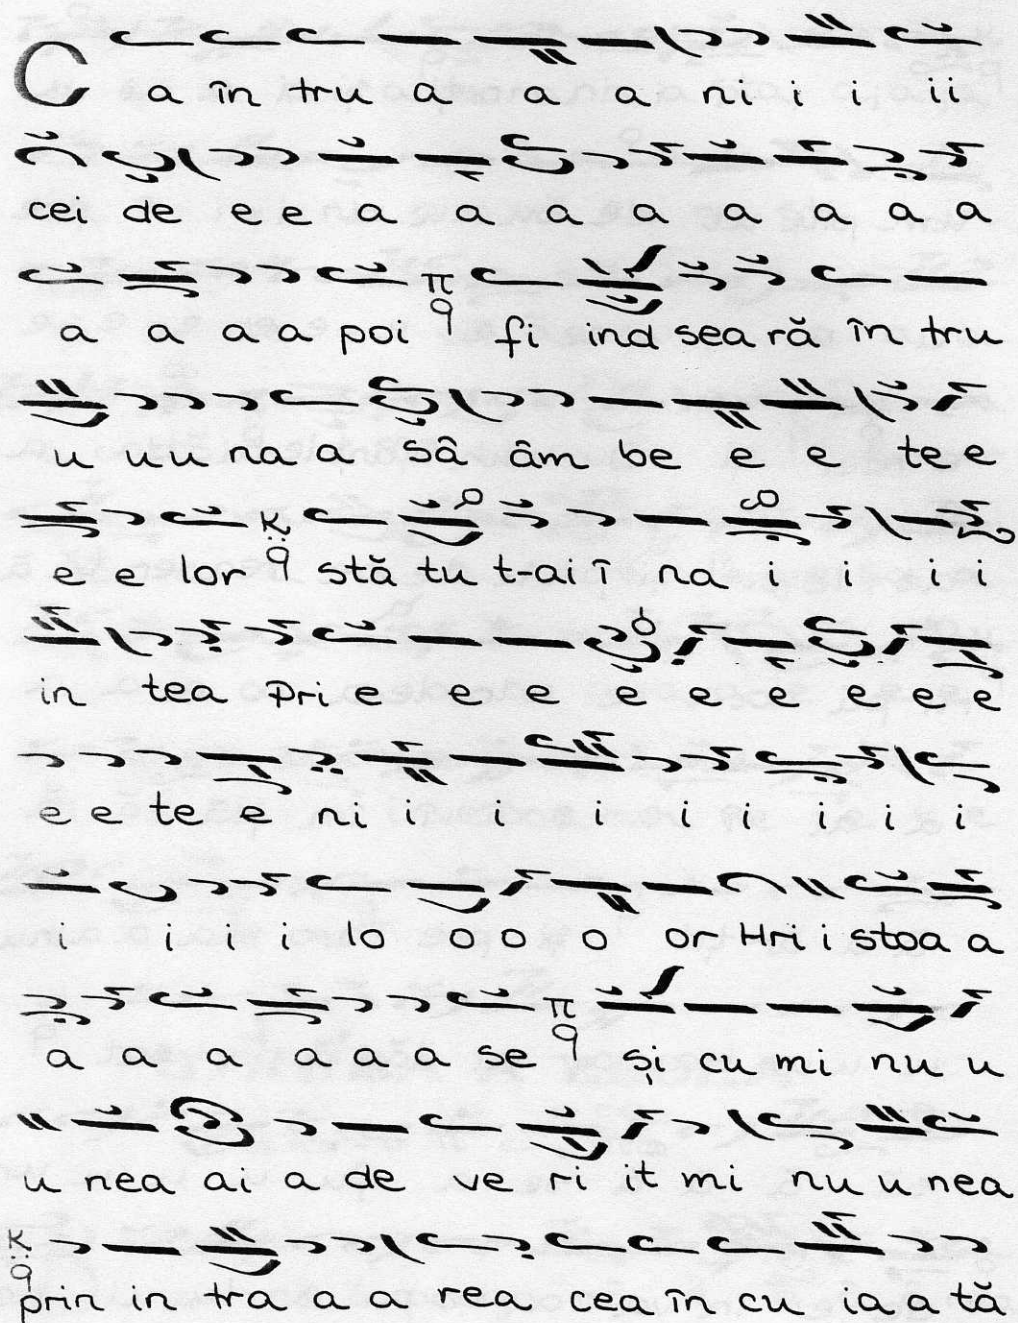 C a în tru a a a ni i i ii
cei de e e a a a a a a a a
a a a a poi π q fi ind sea ră în tru
u u u na a sâ âm be e e te e
e e lor q stă tu t-ai î na i i i i
in tea Pri e e e e e e e e e
e e te e ni i i i i i i i i
i i i i lo o o o or Hri i stoa a
a a a a a a se π q și cu mi nu u
u nea ai a de ve ri it mi nu u nea
q prin in tra a a rea cea în cu ia a tă